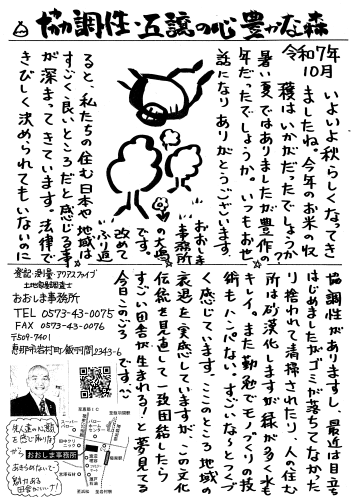 協調性・互譲の心豊かな森
令和7年
10月
いよいよ秋らしくなってき
ましたね。今年のお米の収
穫はいかがだったでしょうか？
暑い夏ではありましたが豊作の
年だったでしょうか。いつもお世
話になりありがとうございます。
おおしま
事務所
の大嶋
です。
改めて
ふり返
ると、私たちの住む日本や地域は
すごく良いところだと感じる事
が深まってきています。法律で
きびしく決められてもいないのに
協調性がありますし、最近は目立ち
はじめましたがゴミが落ちてなかった
り拾われて清掃されたり、人の住む
所は砂漠化しますが緑が多く水も
キレイ。また勤勉でモノづくりの技
術もハンパない。すごいな〜とつくづ
く感じています。ここのところ地域の
衰退を実感していますが、この文化
伝統を見直して一致団結したら
すごい田舎が生まれる！と夢見てる
今日このごろです。
登記・測量・アクアスファイブ
土地家屋調査士
おおしま事務所
TEL 0573-43-0075
FAX 0573-43-0076
〒509-7401
恵那市岩村町飯羽間2343-6
先人達の心意気
を感じ取りな
がら
あきらめないで
魅力ある
田舎がいい！
おおしま事務所